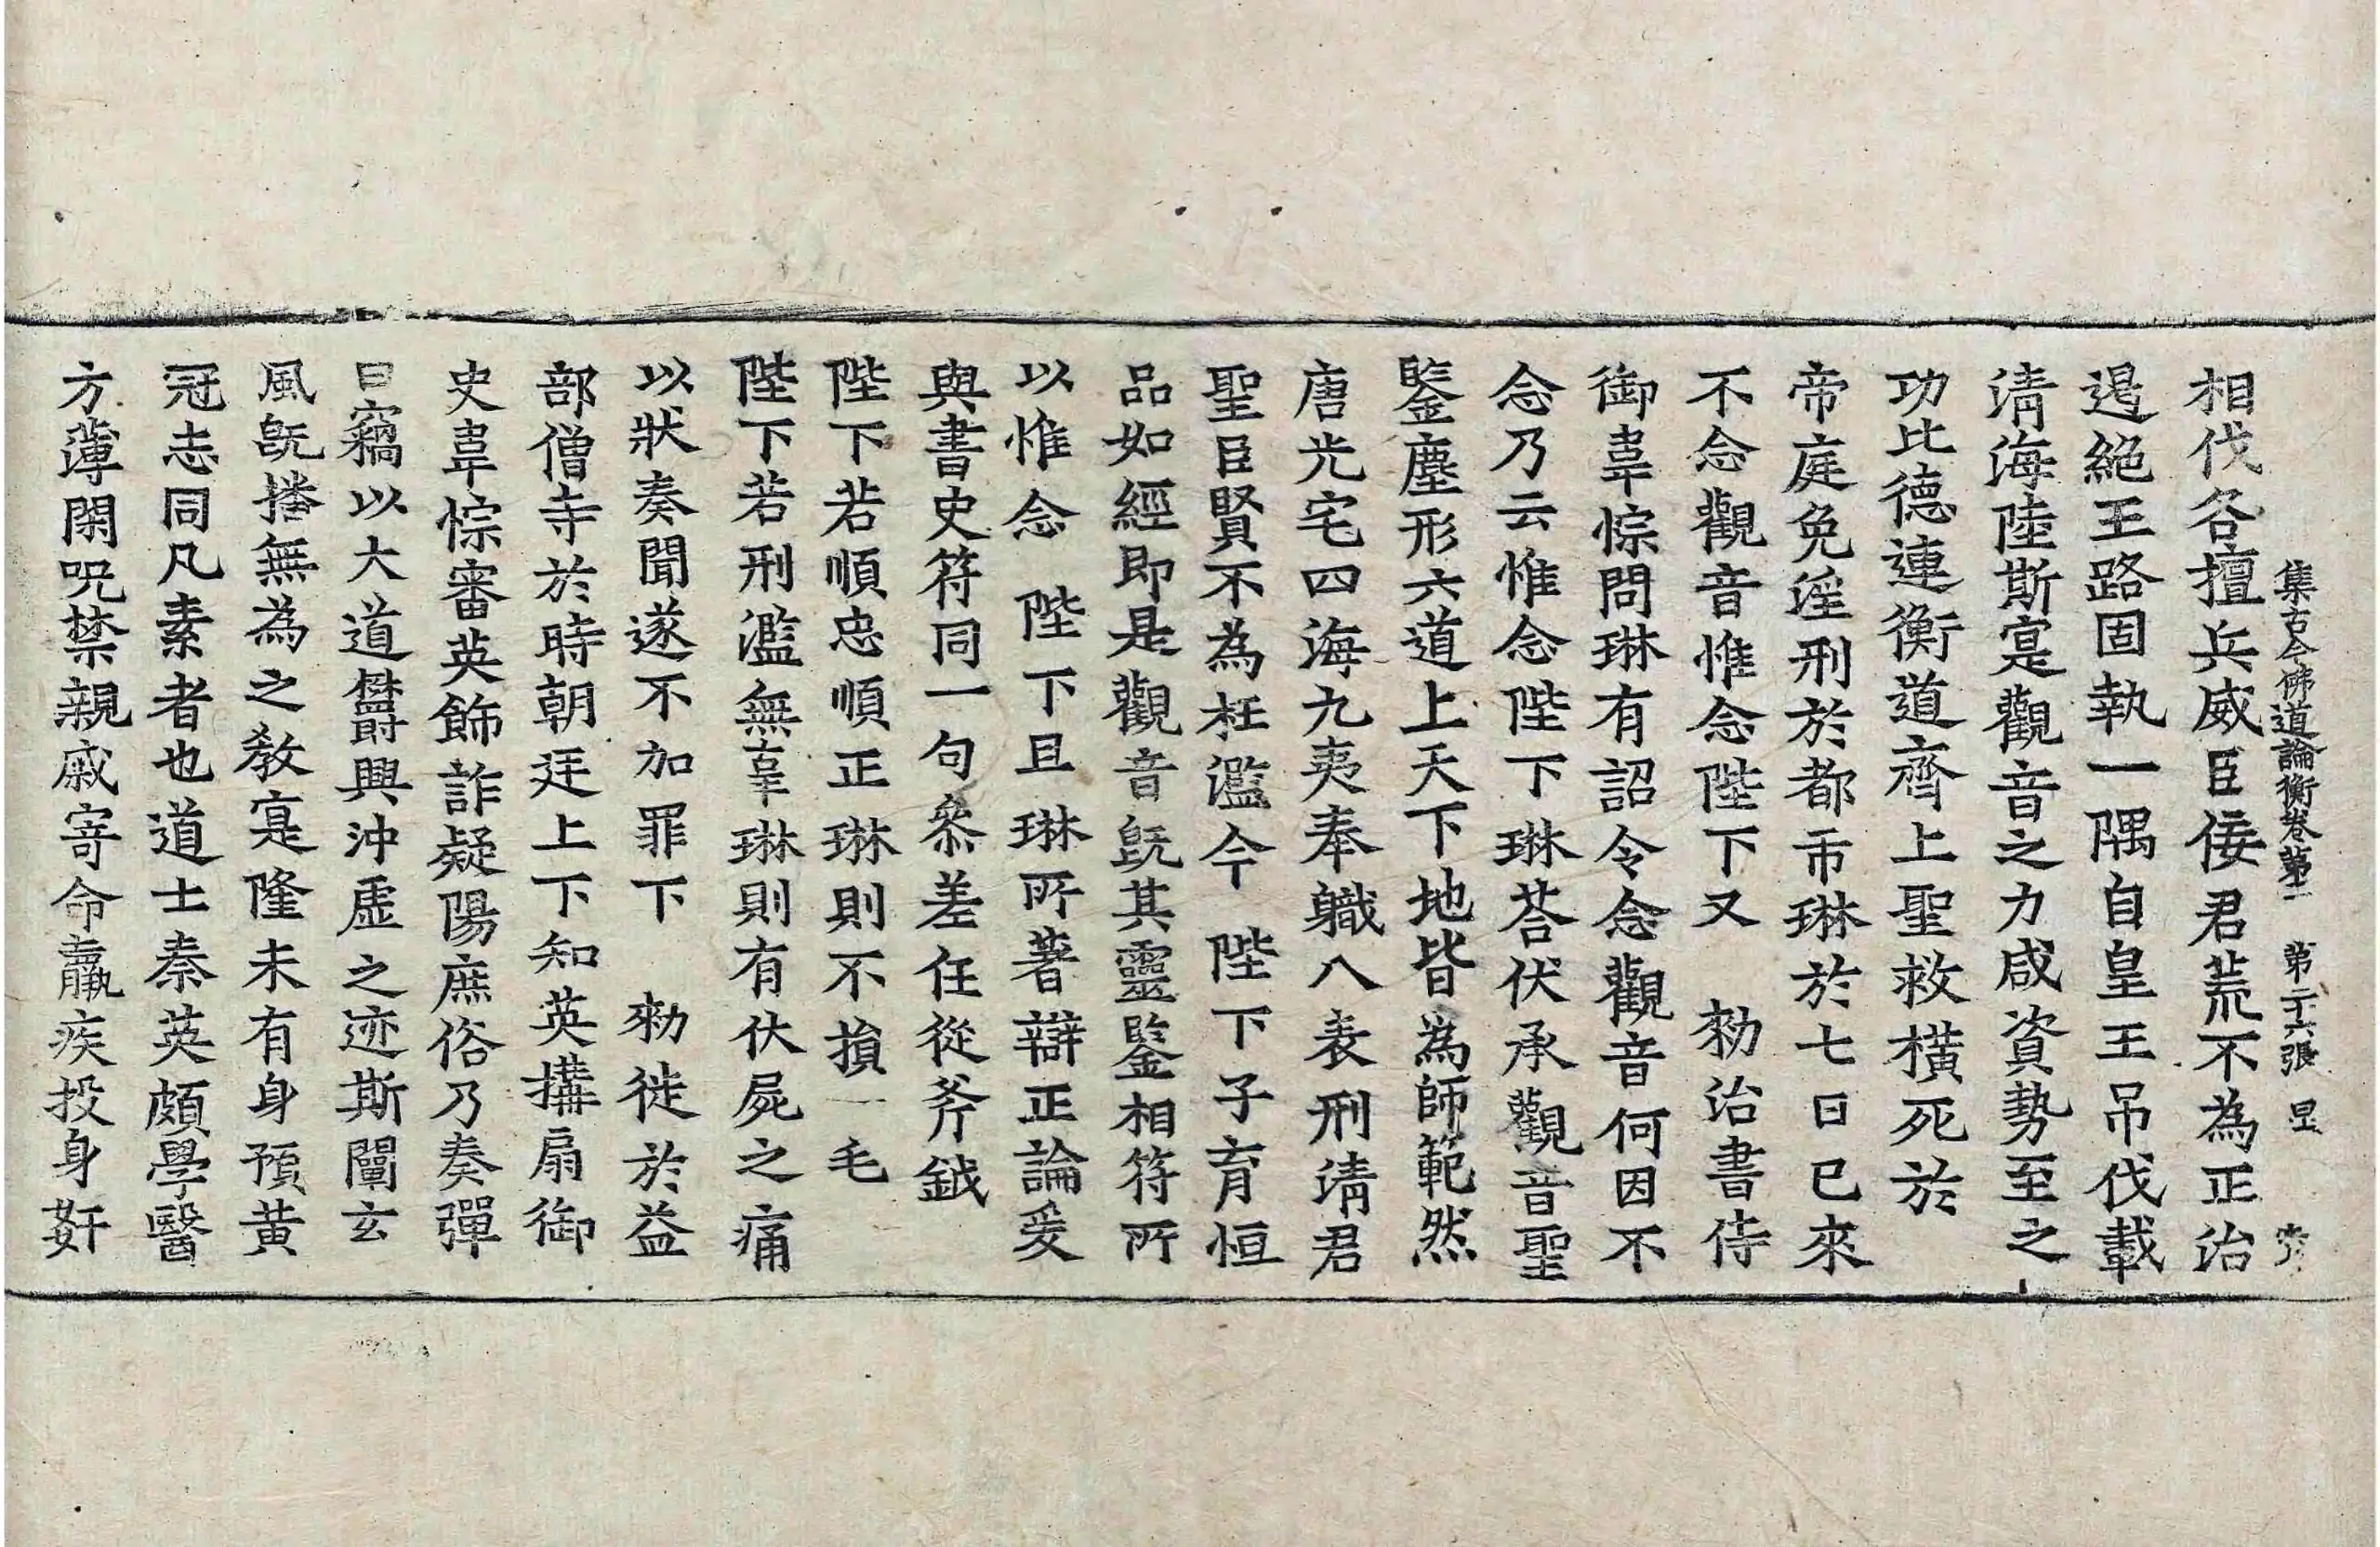 集古今佛道論衡卷第三 第二十六張 星
相伐各擅兵威臣佞君荒不為正治
遏絕王路固執一隅自皇王吊伐載
清海陸斯寔觀音之力咸資勢至之
功比德連衡道齊上聖救橫死於
帝庭免淫刑於都市琳於七日已來
不念觀音惟念陛下又 勑治書侍
御韋悰問琳有詔令念觀音何因不
念乃云惟念陛下琳荅伏承觀音聖
鑒塵形六道上天下地皆為師範然
唐光宅四海九夷奉職八表刑清君
聖臣賢不為枉濫今 陛下子育恒
品如經即是觀音旣其靈鑒相符所
以惟念 陛下且琳所著辯正論爰
與書史符同一句參差任從斧鉞
陛下若順忠順正琳則不損一毛
陛下若刑濫無辜琳則有伏屍之痛
以狀奏聞遂不加罪下 勑徙於益
部僧寺於時朝廷上下知英搆扇御
史韋悰審英飾詐疑陽庶俗乃奏彈
曰竊以大道欝興沖虛之迹斯闡玄
風旣播無為之教寔隆未有身預黃
冠志同凡素者也道士秦英頗學醫
方薄閑呪禁親戚寄命羸疾投身姧